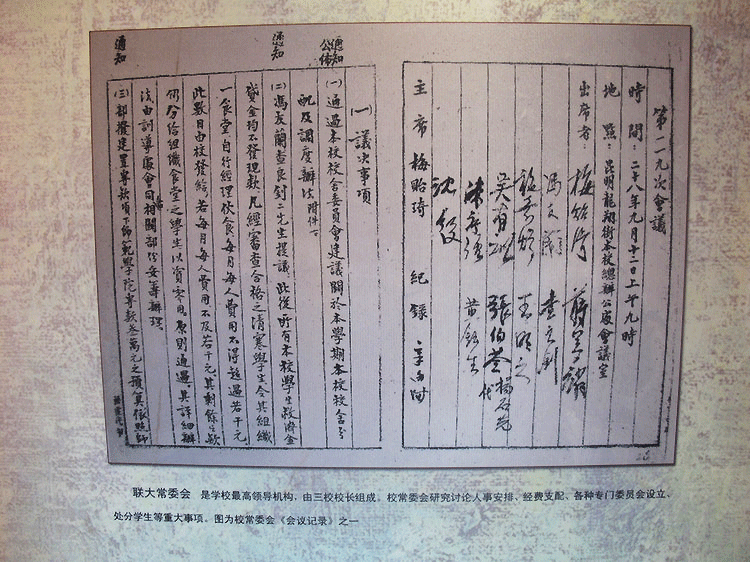 第一一九次會議
時間：二十八年九月十二日上午九時
地點：昆明龍翔街本校總辦公處會議室
出席者：梅貽琦 蔣夢麟
馮友蘭 查良釗
施嘉煬 王明之
吳有訓 張伯苓 楊石先代
陳序經 黃鈺生
沈履
主席 梅貽琦 紀錄
(一) 議決事項
(一) 通過本校校舍委員會建議關於本學期本校校舍分
配及調度辦法 附件一
(二) 馮友蘭查良釗二先生提議此後所有本校學生救濟金
貸金均不發現款凡經審查合格之清寒學生令其組織
一食堂自行經理伙食每月每人費用不得超過若干元
此數目由校發給若每月每人費用不及若干元其剩餘之款
仍分給組織食堂之學生以資零用原則通過其詳細辦
法由訓導處會同相關部份妥籌辦理
(三) 部撥建置專款項下師範學院專款叁萬元之預算依照師
通知
公佈 通知
通知
联大常委会 是学校最高领导机构，由三校校长组成。校常委会研究讨论人事安排、经费支配、各种专门委员会设立、
处分学生等重大事项。图为校常委会《会议记录》之一